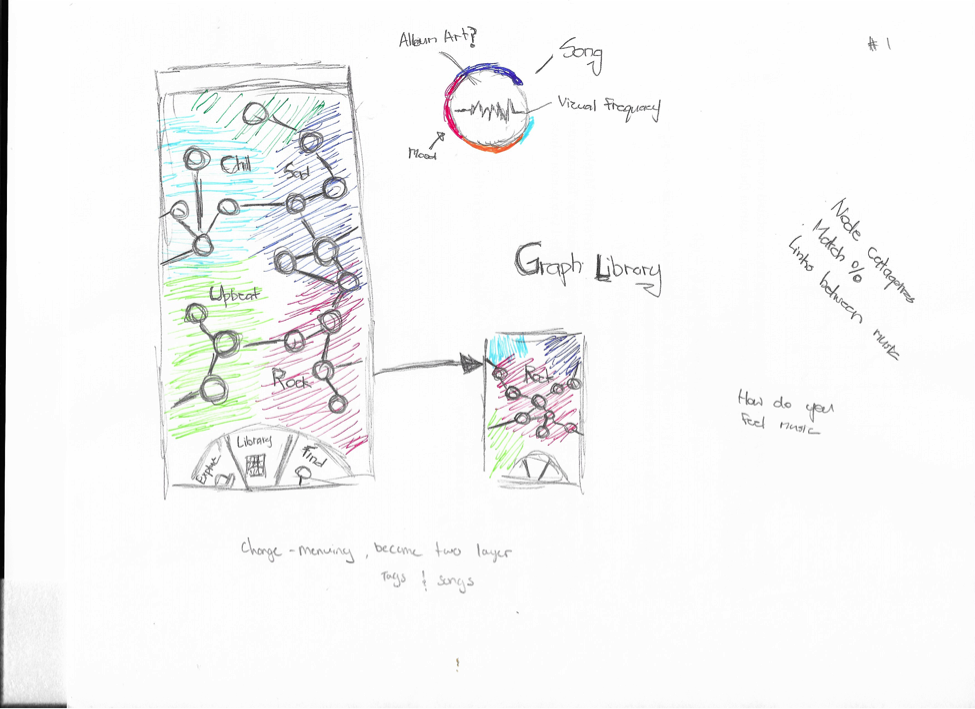 # 1
Album Art?
Song
Visual Frequency
Mood
Chill
Sad
Upbeat
Rock
Explore
Library
Find
Graph Library
Rock
Node Catagories
Match %
Links between music
How do you
feel music
Change - menuing, become two layer
Tags & songs
!